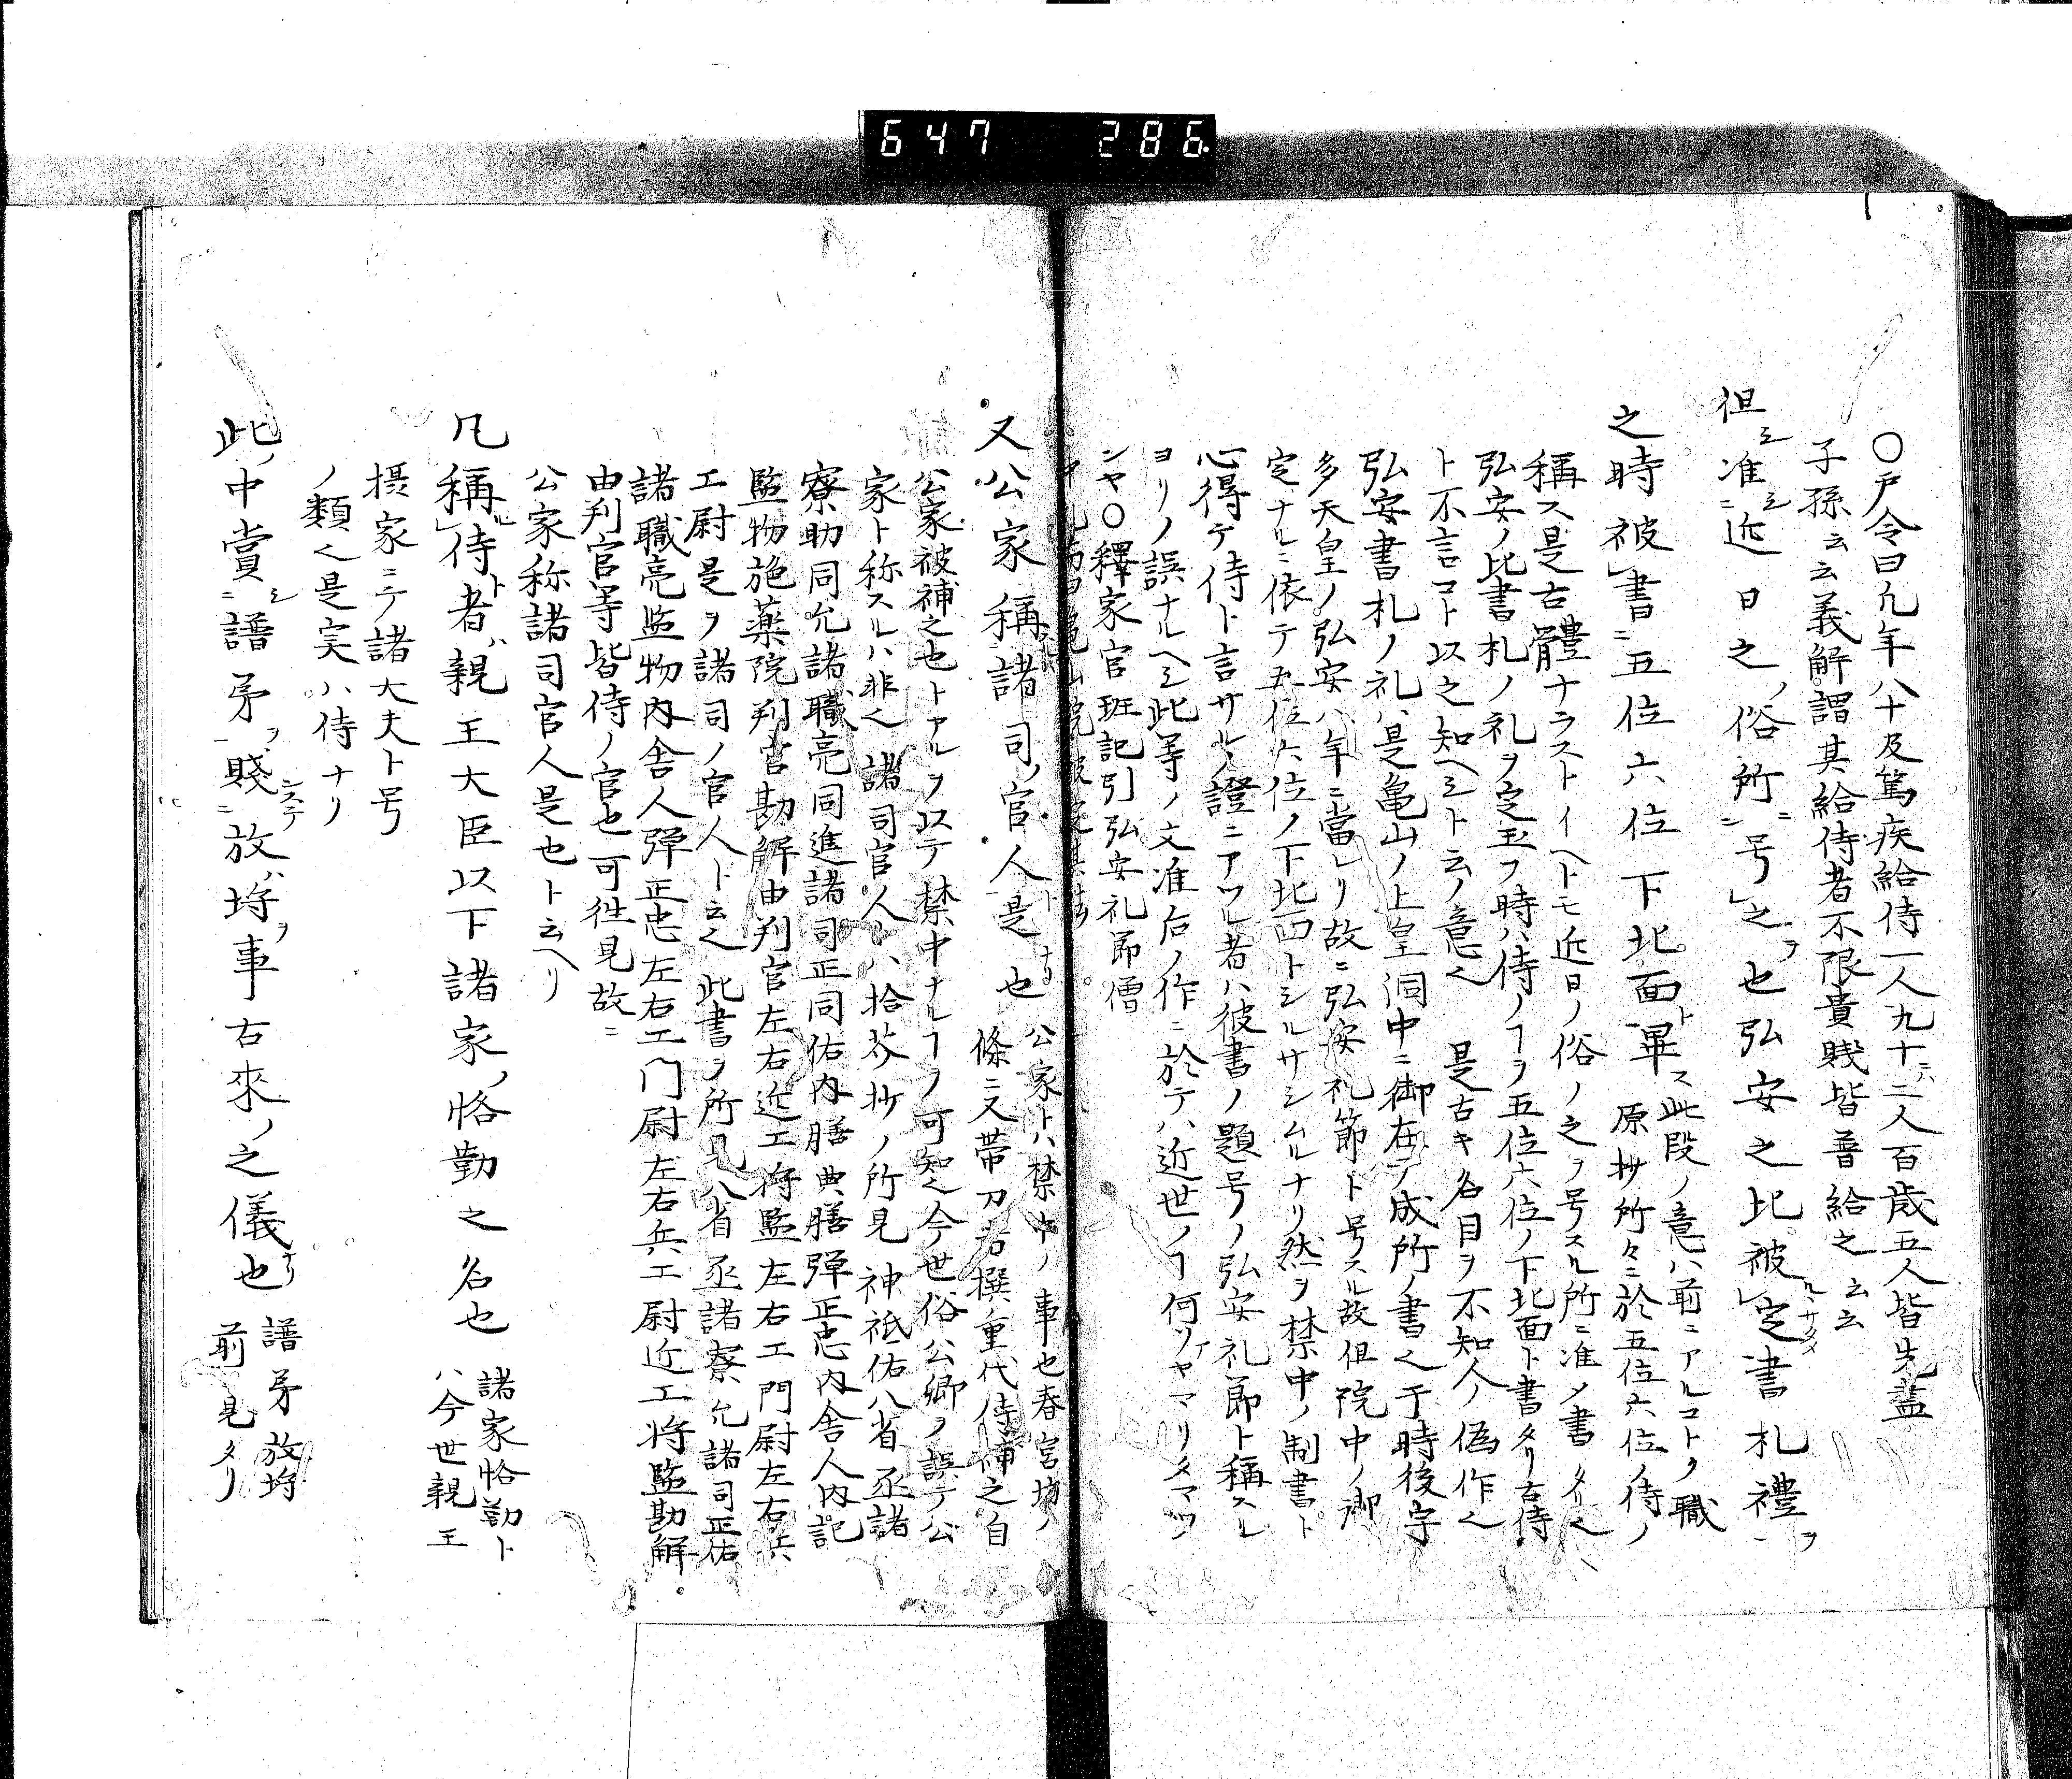 647 286
〇戸令曰凢年八十及篤疾給侍一人九十二人百歳五人皆先盡
子孫云云義解謂其給侍者不限貴賤皆普給之云云
但シ准シニ近日之ノ俗所ニ号ニ之ヲ也弘安之比被ルサタメ定書札禮ヲ
之時被書ニ五位六位下北面ト畢ス此段ノ意ハ前ニアルコトク職
原抄所々ニ於五位六位ノ侍ノ
稱ス是古體ナラストイヘトモ近日ノ俗ノ之ヲ号スル所ニ准メ書タリ𪜈
弘安ノ比書札ノ礼ヲ定玉フ時ハ侍ノヿヲ五位六位ノ下北面ト書タリ古侍
ト不言コト以之知ヘシト云ノ意也 是古キ名目ヲ不知人ノ偽作也
弘安書札ノ礼ハ是亀山ノ上皇洞中ニ御在テ成所ノ書也于時後宇
多天皇ノ弘安八年ニ當レリ故ニ弘安礼節ト号スル故但院中ノ御
定ナルニ依テ五位六位ノ下北面トシルサシムルナリ然ヲ禁中ノ制書ト
心得テ侍ト言サルノ證ニアツル者ハ彼書ノ題号ノ弘安礼節ト稱スル
ヨリノ誤ナルヘシ此等ノ文准后ノ作ニ於テハ近世ノヿ何ソアヤマリタマワン
ンヤ〇釋家官班記引弘安礼節僧
又公家稱諸司ノ官人ト是ナリ也公家トハ禁中ノ事也春宮坊ノ
條ニ又帯刀者撰重代侍補之自
公家被補之也トアルヲ以テ禁中ナルヿヲ可知也今世俗公卿ヲ誤テ公
家ト称スルハ非也諸司官人ハ拾芥抄ノ所見神祇佑八省丞諸
寮助同允諸職亮同進諸司正同佑内膳典膳弾正忠内舎人内記
監物施薬院判官勘解由判官左右近エ将監左右エ門尉左右兵
エ尉是ヲ諸司ノ官人ト云也此書ヲ所見八省丞諸寮允諸司正佑
諸職亮監物内舎人弾正忠左右エ门尉左右兵エ尉近エ将監勘解
由判官等皆侍ノ官也可徃見故ニ
公家称諸司官人是也ト云ヘリ
凡稱ルト侍者ハ親王大臣以下諸家ノ恪勤之名也諸家恪勤ト
ハ今世親王
摂家ニテ諸大夫ト号
ノ類也是実ハ侍ナリ
此ノ中賞シニ譜苐ヲ賤システニ放埓ヲ事ハ古來ノ之儀也ナリ譜苐放埓
前見タリ